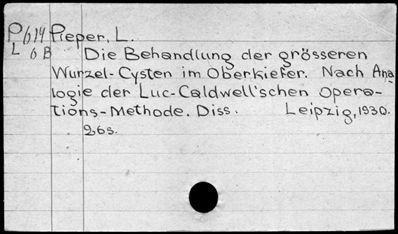 P614 Pieper, L.
L 6 B Die Behandlung der grösseren
Wurzel-Cysten im Oberkiefer. Nach Ana
logie der Luc-Caldwell'schen Opera-
tions-Methode. Diss. Leipzig, 1930.
26s.